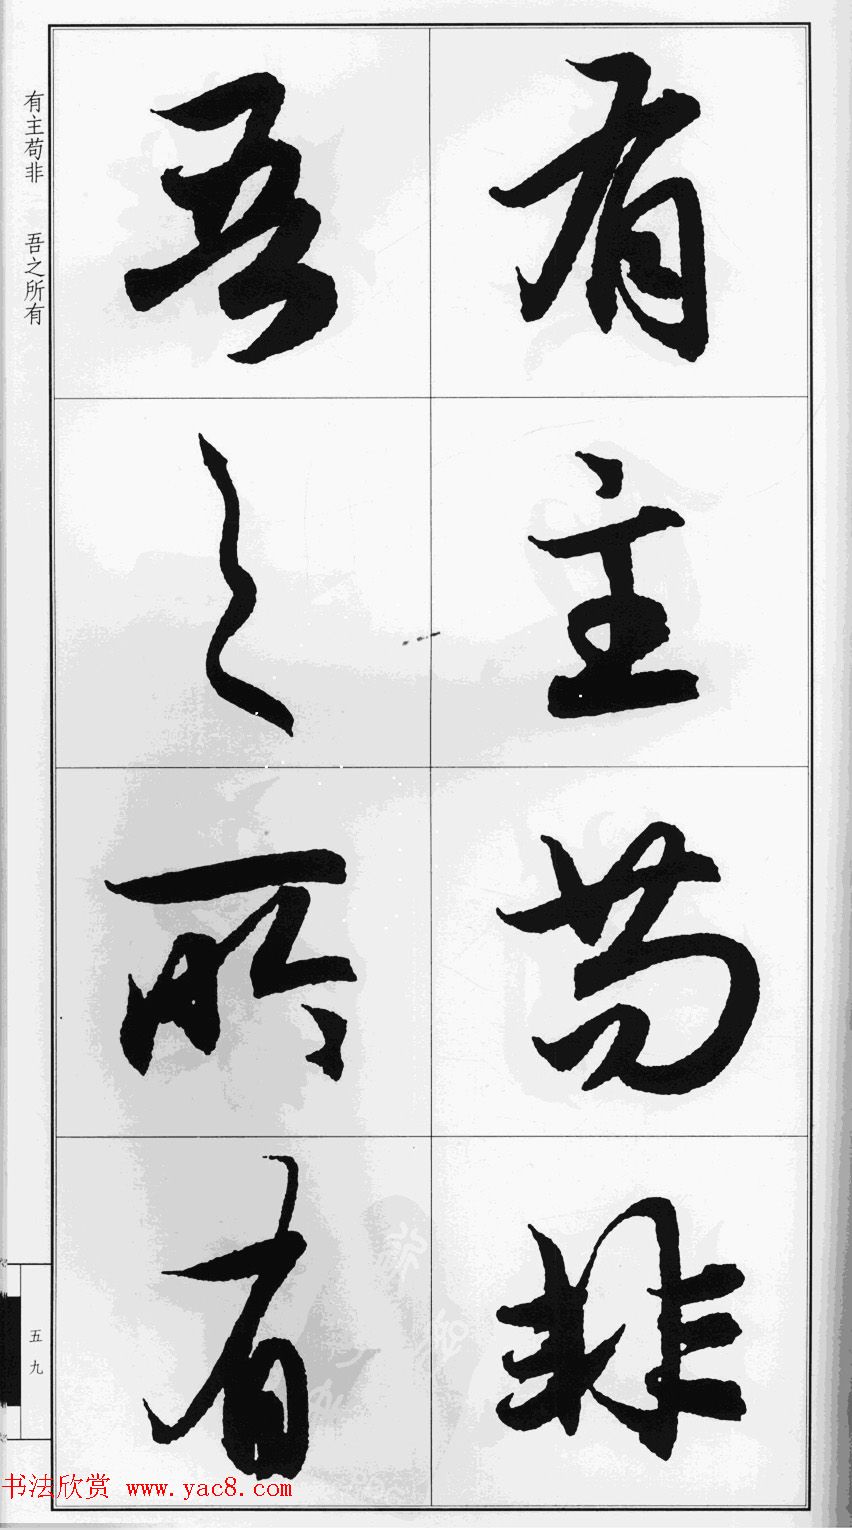 有主苟非
吾之所有
有主苟非 吾之所有
五九
书法欣赏 www.yac8.com